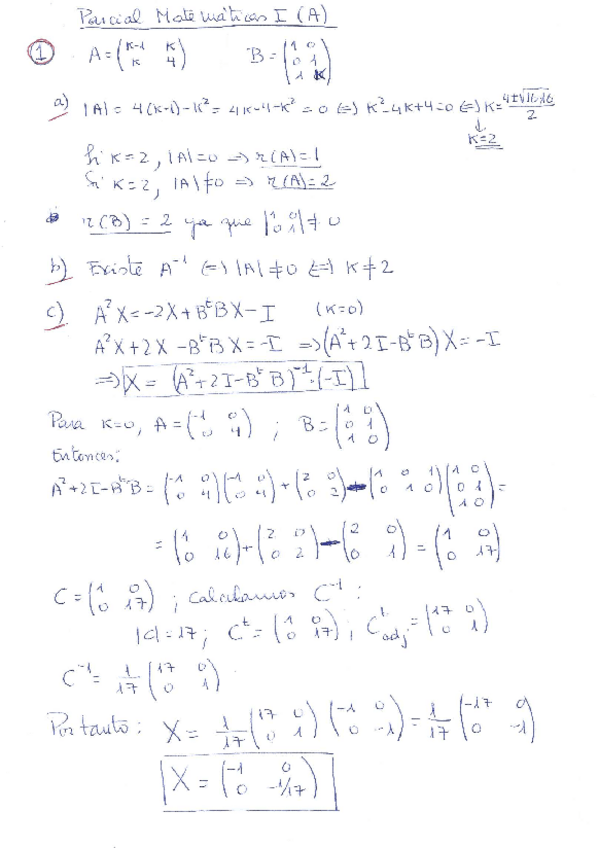 Parcial Matemáticas I (A)
① A = (K-1 K / K 4) B = (1 0 / 0 1 / 1 K)
a) |A| = 4(K-1) - K² = 4K-4-K² = 0 ⇔ K²-4K+4=0 ⇔ K = (4±√16-16)/2
↓
K=2
Si K=2, |A|=0 ⇒ r(A)=1
Si K=2, |A|≠0 ⇒ r(A)=2
r(B) = 2 ya que |1 0 / 0 1| ≠ 0
b) Existe A⁻¹ ⇔ |A|≠0 ⇔ K≠2
c) A²X = -2X + BᵗBX - I (K=0)
A²X + 2X - BᵗBX = -I ⇒ (A² + 2I - BᵗB)X = -I
⇒ X = (A² + 2I - BᵗB)⁻¹·(-I)
Para K=0, A = (-1 0 / 0 4) ; B = (1 0 / 0 1 / 1 0)
Entonces:
A²+2I-BᵗB = (-1 0 / 0 4)(-1 0 / 0 4) + (2 0 / 0 2) - (1 0 1 / 0 1 0)(1 0 / 0 1 / 1 0) =
= (1 0 / 0 16) + (2 0 / 0 2) - (2 0 / 0 1) = (1 0 / 0 17)
C = (1 0 / 0 17) ; calculamos C⁻¹ :
|C| = 17 ; Cᵗ = (1 0 / 0 17) ; Cᵗadj = (17 0 / 0 1)
C⁻¹ = 1/17 (17 0 / 0 1)
Por tanto : X = 1/17 (17 0 / 0 1) (-1 0 / 0 -1) = 1/17 (-17 0 / 0 -1)
X = (-1 0 / 0 -1/17)